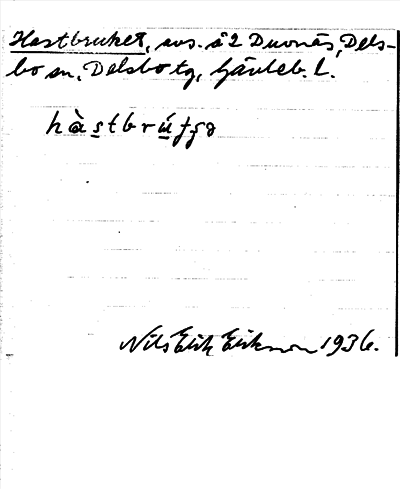 Hastbruket, avs. å 2 Duvnäs, Dels-
bo sn, Delsbo tg, Gävleb. l.
hàstbrú
Nils Erik Erikson 1936.